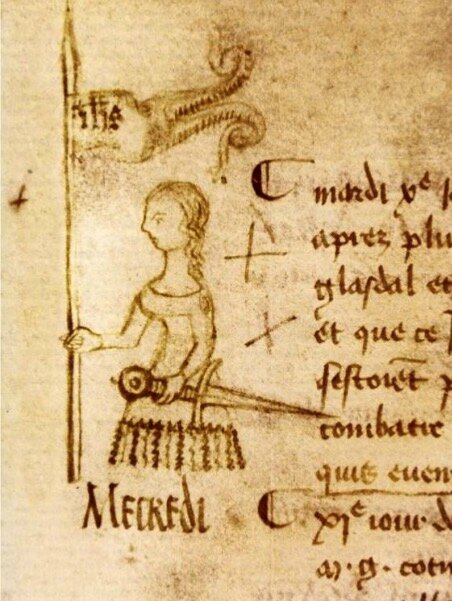 ihs
mardi xᵉ
aprez plu
glasdal et
et que ce
sestoiēt p
combatre
quis euen
MECREDI xjᵉ iour d
m. g. cotī